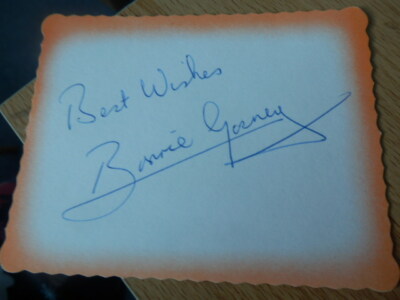 Best Wishes
Bonnie Gorney